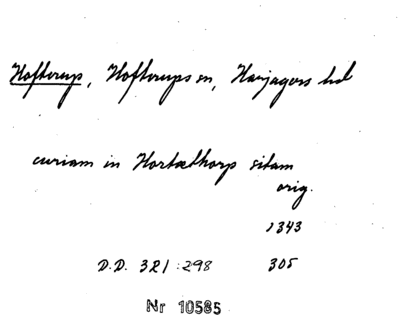 Hofterup, Hofterups sn, Harjagers hd
curiam in Hortæthorp sitam
orig.
1343
D.D. 321:298 305
Nr 10585